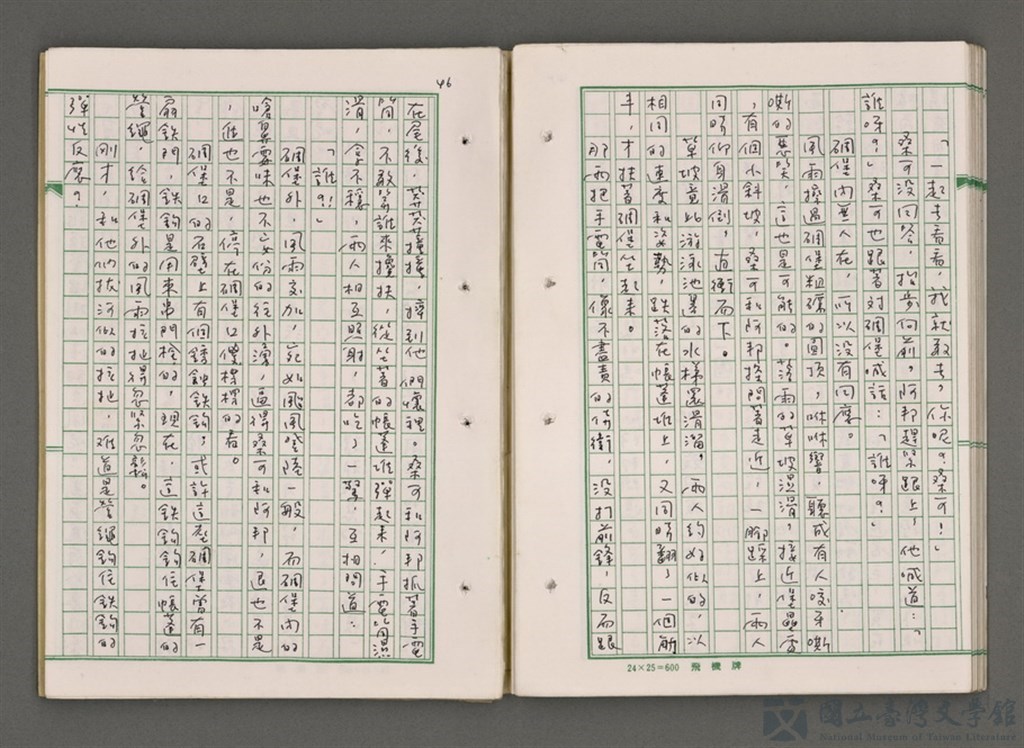 「一起去看看，我就敢去，你呢？桑可！」
桑可没回答，抬步向前，阿邦趕緊跟上，他喊道：「
誰呀？」桑可也跟著对碉堡喊話：「誰呀？」
碉堡内無人在，所以没有回應。
風雨擦過碉堡粗礪的圓頂，咻咻響，聽成有人咬牙嘶
嘶的惡笑，這也是可能的。落雨的草坡湿滑，接近堡壘處
，有個小斜坡，桑可和阿邦挨著走近，一腳踩上，兩人
同時仰身滑倒，直衝而下。
草坡竟比游泳池畔的水梯還滑溜，兩人約好似的，以
相同的速度和姿勢，跌落在帳蓬堆上，又同時翻了一個觔
斗，才扶著碉堡坐起来。
那兩把手電筒，像不盡責的侍衛，没打前鋒，反而跟
46
在尾後，莽莽撞撞，摔到他們懷裡。桑可和阿邦抓著手電
筒，不敢等誰來攙扶，從坐著的帳蓬堆彈起来，手電筒濕
滑，拿不穩，兩人相互照射，都吃了一驚，互相問道：
「誰？！」
碉堡外，風雨交加，宛如颱風登陸一般，而碉堡内的
嗆鼻霉味也不安份的往外湧，逼得桑可和阿邦，退也不是
，進也不是，停在碉堡口傻楞楞的看。
碉堡口的石壁上有個銹蝕鐵鉤；或許這忽碉堡曾有一
扇鉄門，鉄鉤是用來串門栓的，現在，這鉄鉤鉤住帳蓬的
營繩，給碉堡外的風雨拉扯得忽緊忽鬆。
剛才，和他們拔河似的拉扯，难道是營繩鉤住鉄鉤的
彈性反應？
24×25=600 飛機牌
國立臺灣文學館
National Museum of Taiwan Literature